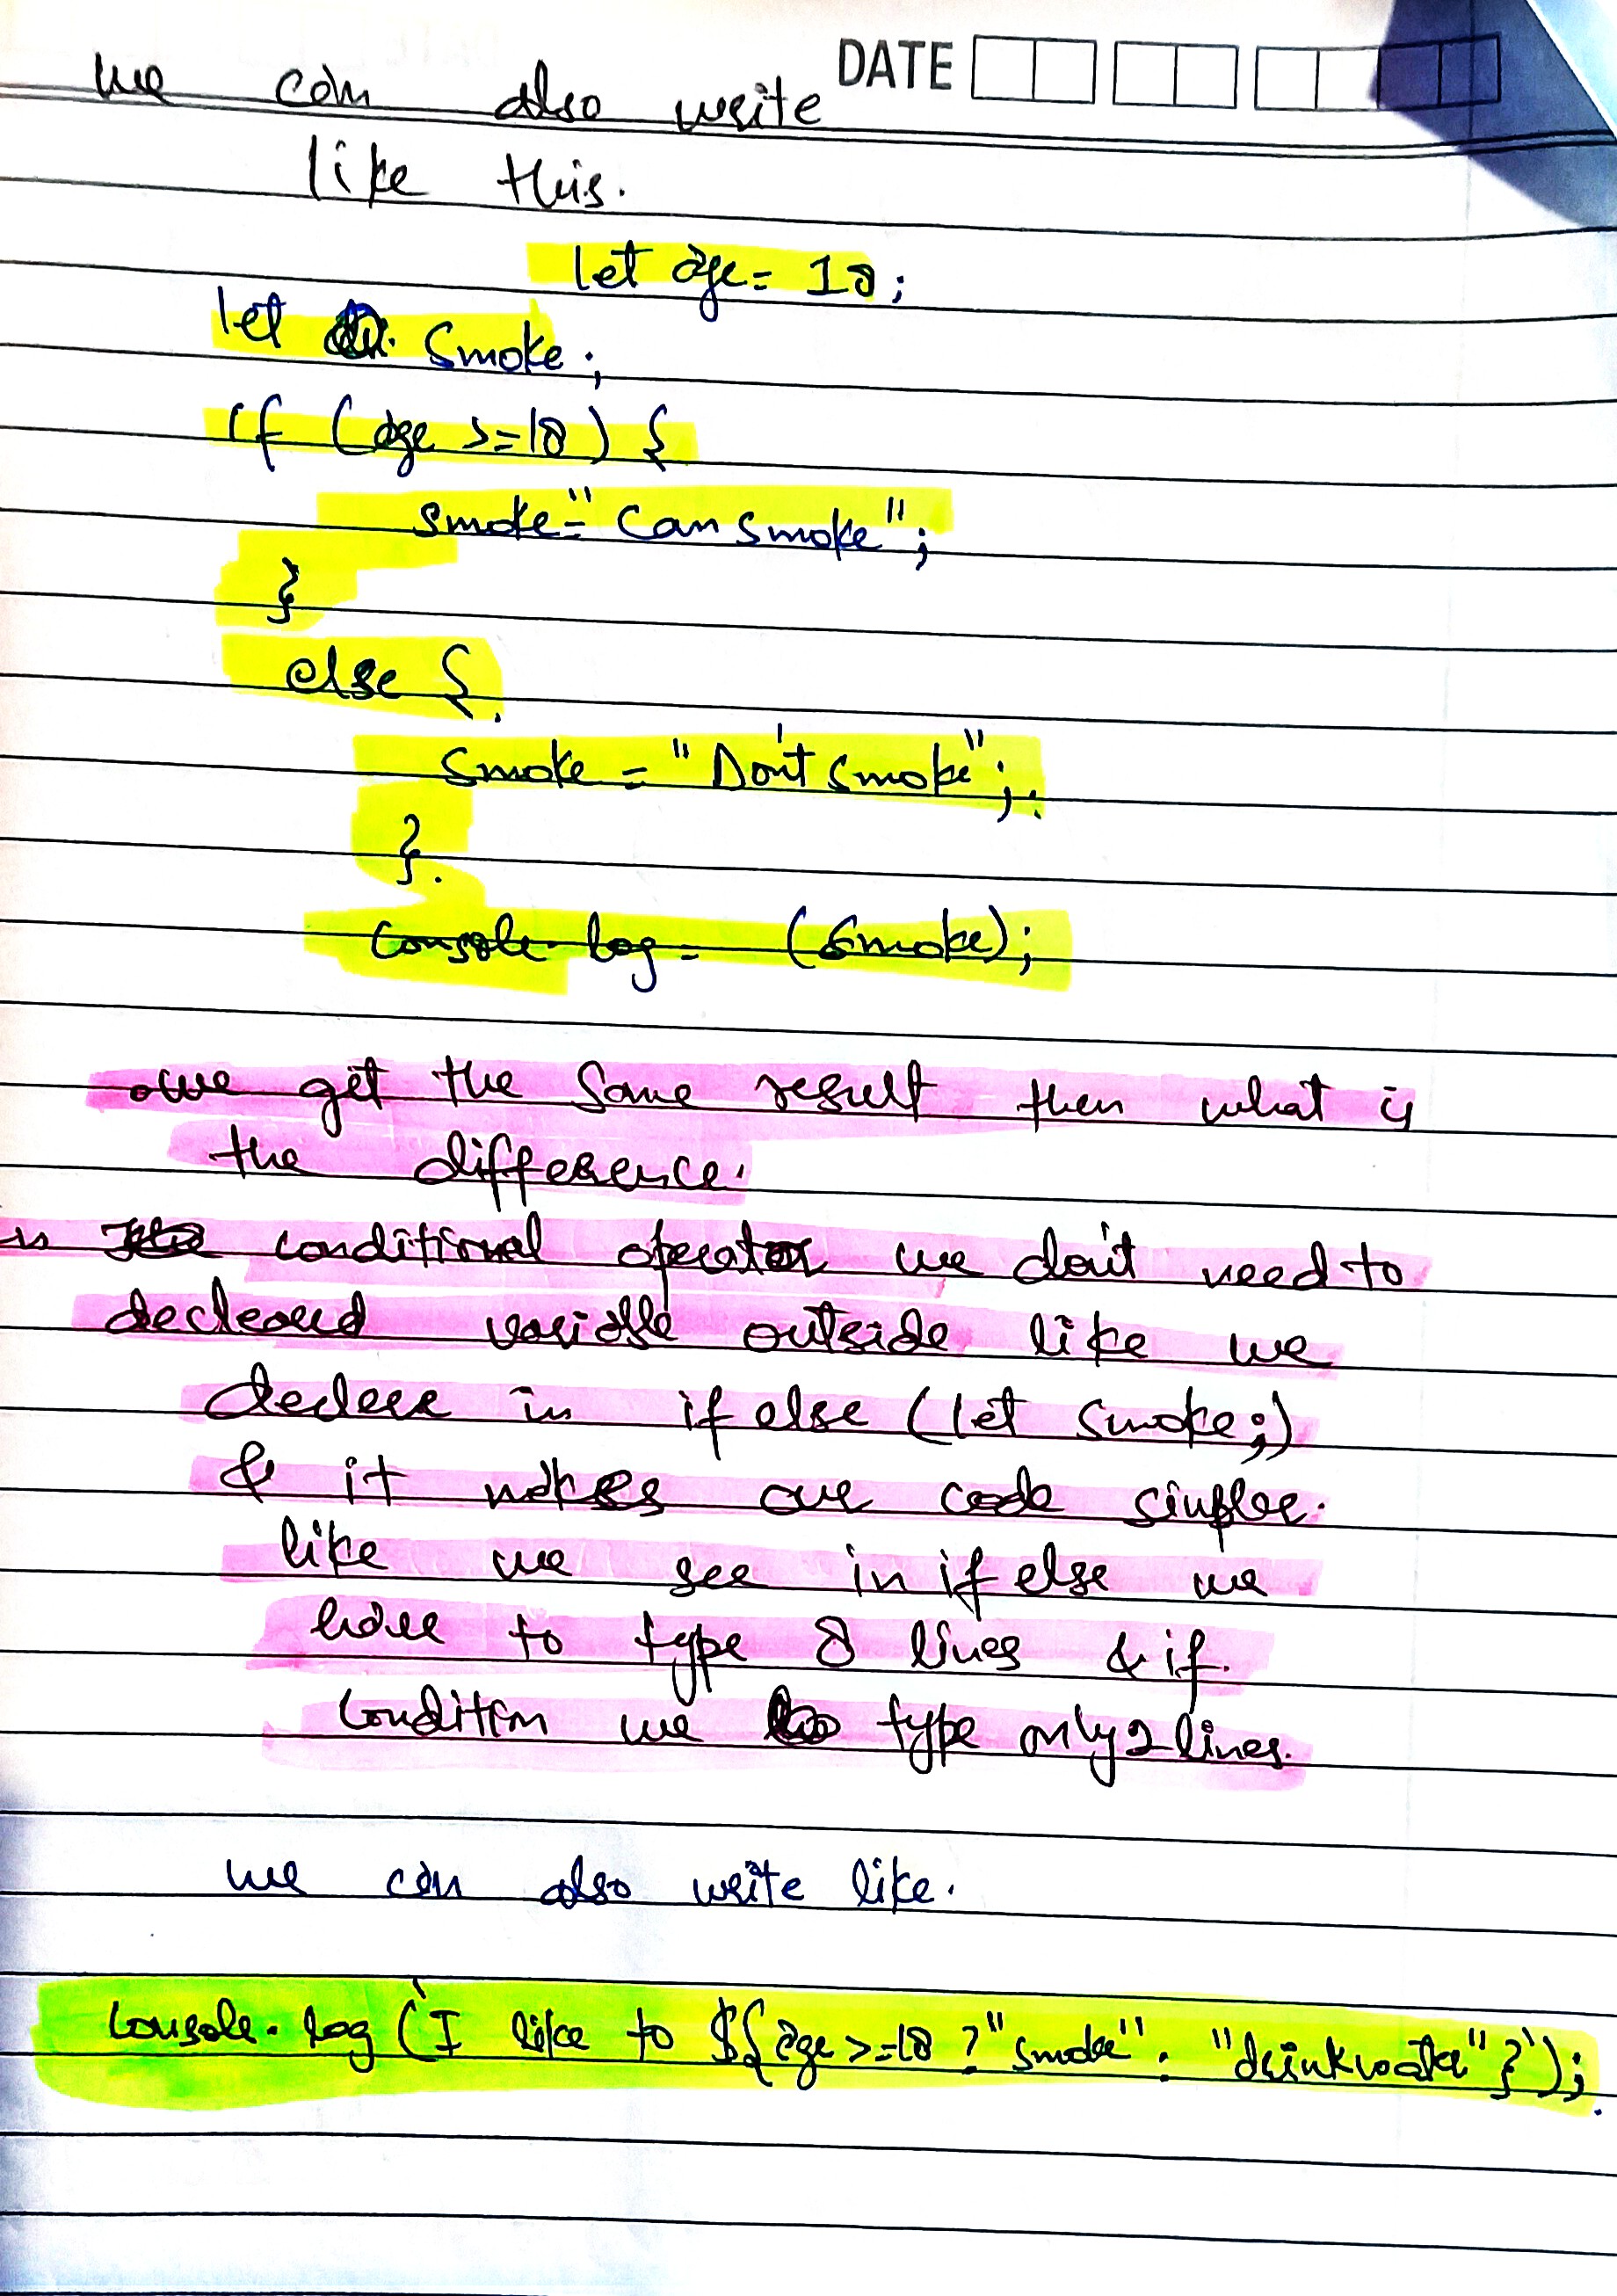 DATE
we can also write
like this.
let age = 18;
let smoke;
if (age >= 18) {
smoke = "Can smoke";
}
else {
smoke = "Don't smoke";
}.
console.log = (smoke);
we get the same result then what is
the difference.
conditional operator we don't need to
decleared variable outside like we
declere in if else (let smoke;)
& it makes our code simpler.
like we see in if else we
have to type 8 lines & if
condition we type only 2 lines.
we can also write like.
console.log (`I like to ${age >= 18 ? "smoke" : "drinkwater"}`);